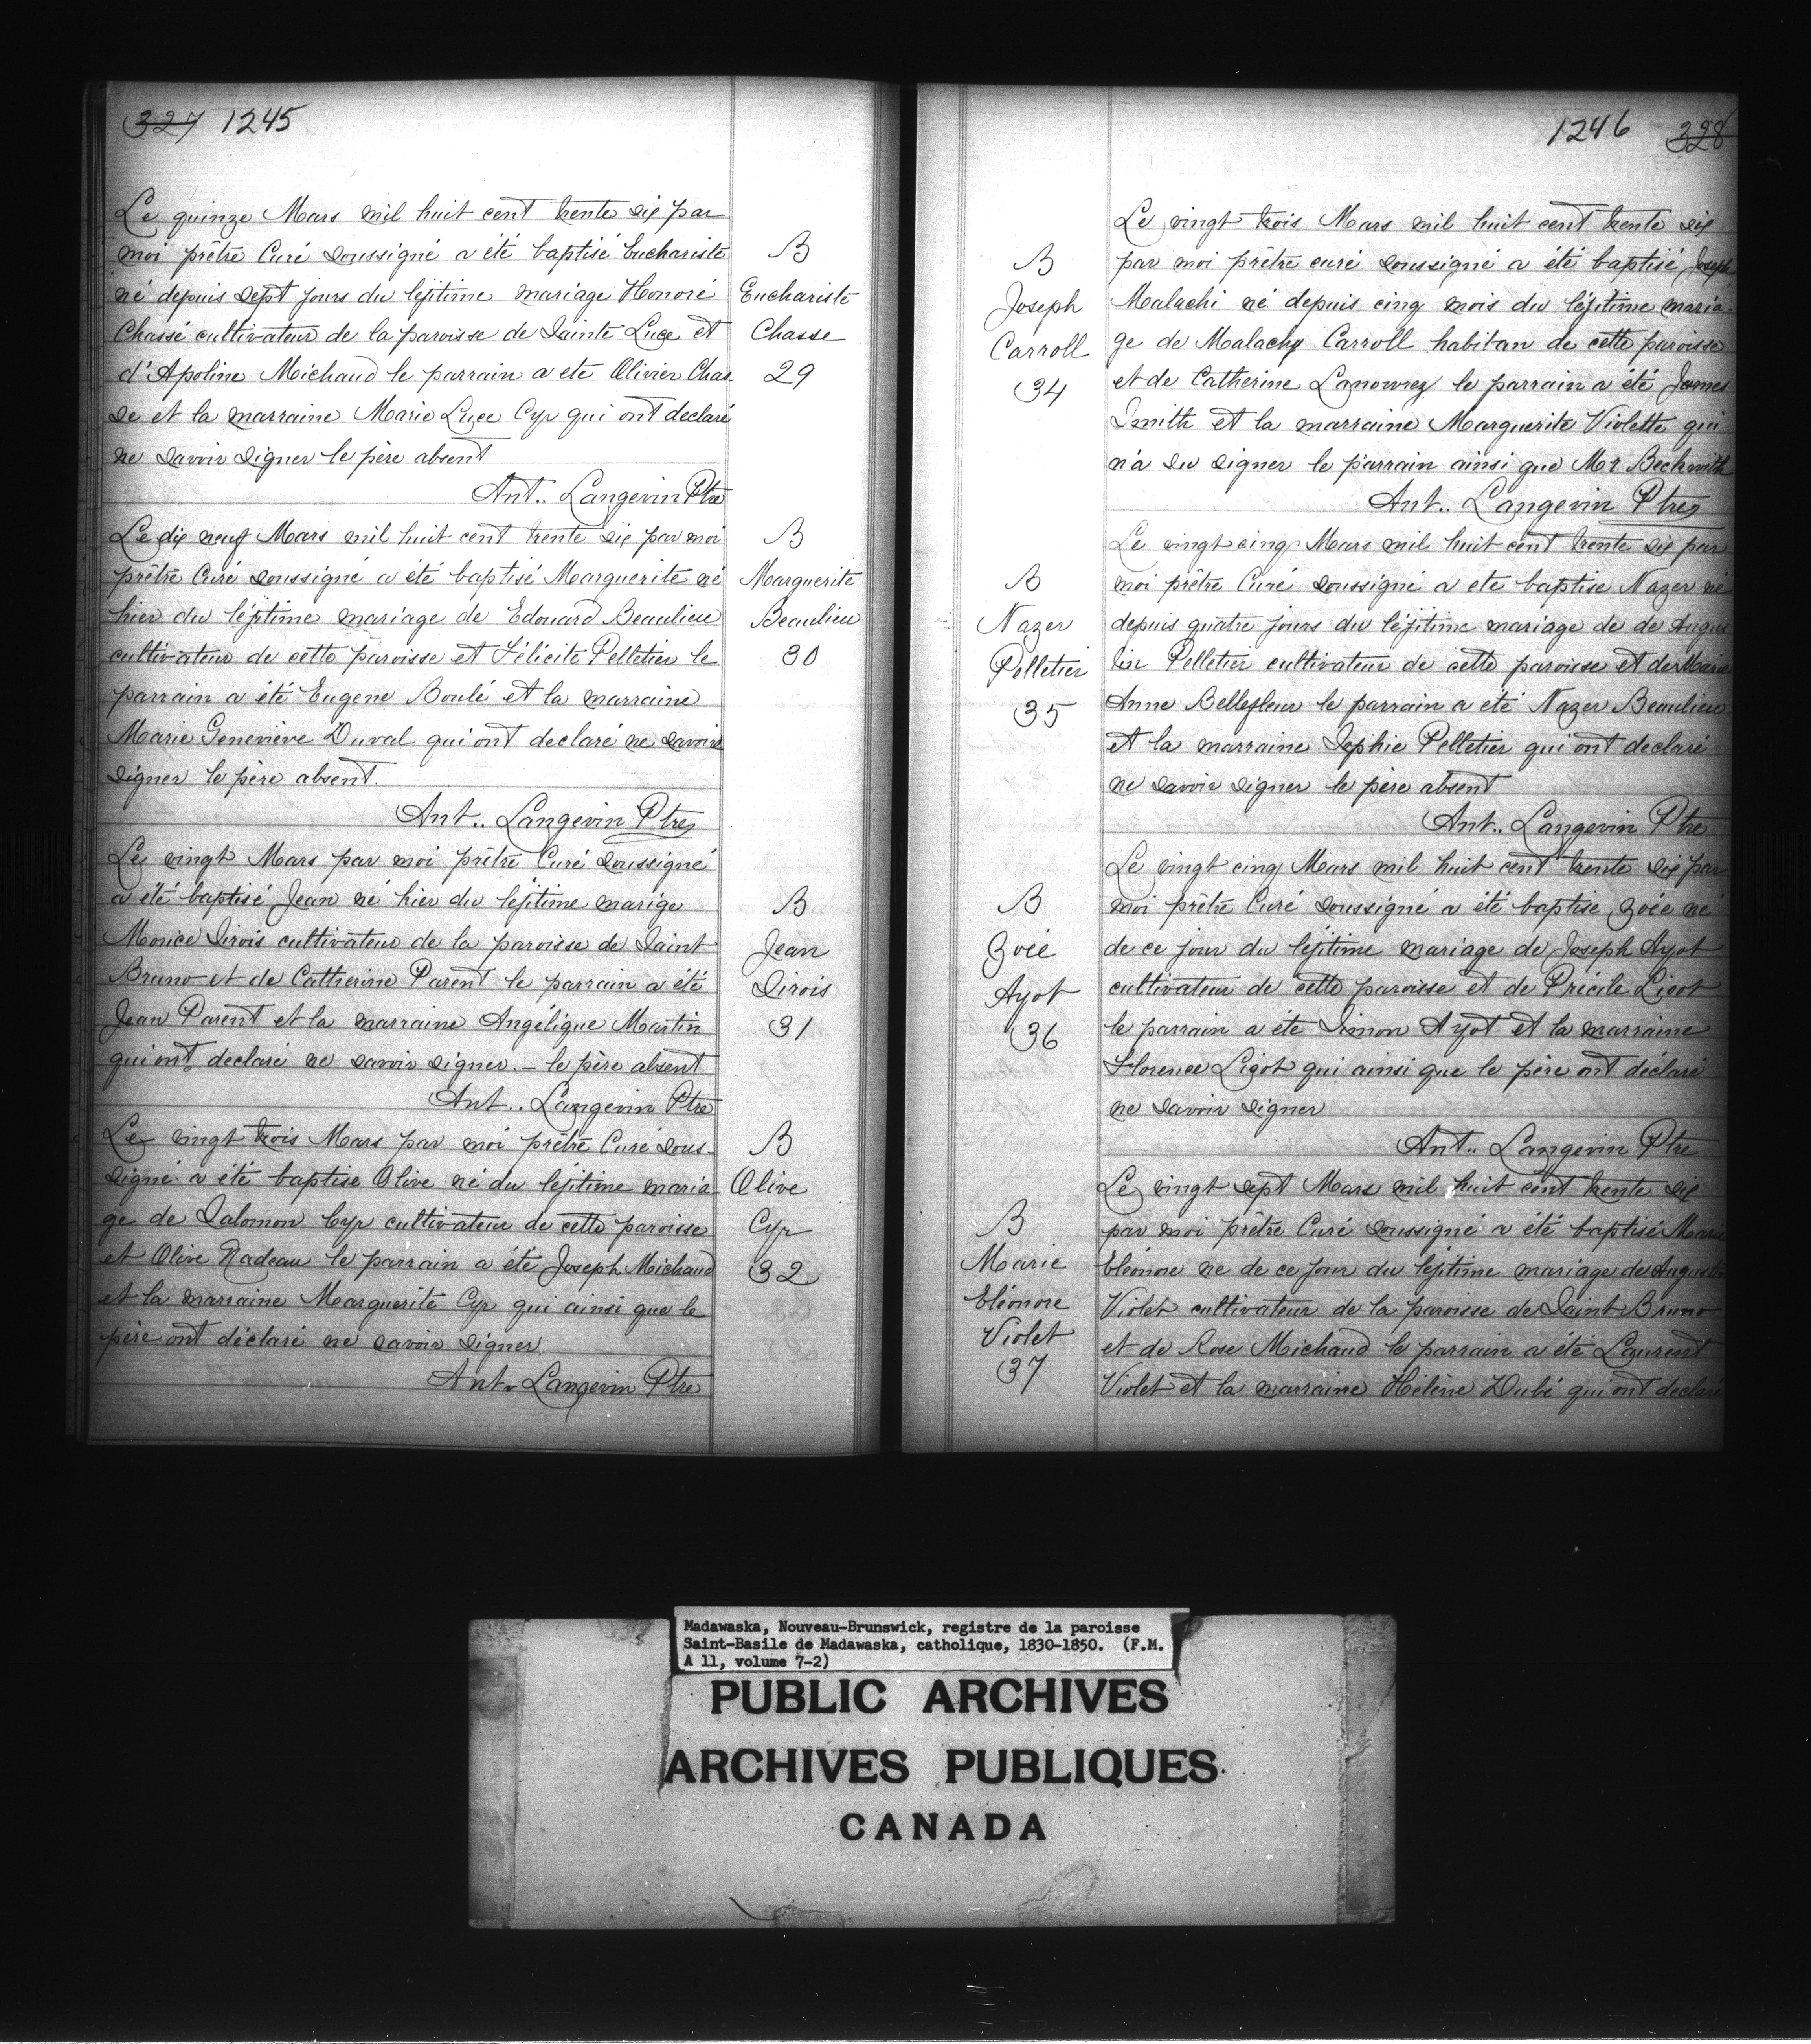 327 1245
Le quinze Mars mil huit cent trente six par
moi prêtre Curé soussigné a été baptisé Euchariste
né depuis sept jours du léjitime mariage Honoré
Chassé cultivateur de la paroisse de Sainte Luce et
d'Apoline Michaud le parrain a ete Olivier Chas-
se et la marraine Marie Luce Cyr qui ont declaré
ne savoir signer le père absent
Ant.. Langevin Ptre
B
Euchariste
Chasse
29
Le dix neuf Mars mil huit cent trente six par moi
prêtre Curé soussigné a été baptisé Marguerite né
hier du léjitime mariage de Edouard Beaulieu
cultivateur de cette paroisse et Félicité Pelletier le
parrain a été Eugene Boulé et la marraine
Marie Geneviève Duval qui ont declaré ne savoir
signer le père absent.
Ant.. Langevin Ptre
B
Marguerite
Beaulieu
30
Le vingt Mars par moi prêtre Curé soussigné
a été baptisé Jean né hier du léjitime marige
Morice Sirois cultivateur de la paroisse de Saint
Bruno et de Catherine Parent le parrain a été
Jean Parent et la marraine Angélique Martin
qui ont declaré ne savoir signer. - le père absent
Ant.. Langevin Ptre
B
Jean
Sirois
31
Le vingt trois Mars par moi prêtre Curé sous-
signé a été baptise Olive né du léjitime maria-
ge de Salomon Cyr cultivateur de cette paroisse
et Olive Nadeau le parrain a été Joseph Michaud
et la marraine Marguerite Cyr qui ainsi que le
père ont déclaré ne savoir signer.
Ant.. Langevin Ptre
B
Olive
Cyr
32
1246 328
B
Joseph
Carroll
34
Le vingt trois Mars mil huit cent trente six
par moi prêtre curé soussigné a été baptisé Joseph
Malachi né depuis cinq mois du léjitime maria-
ge de Malachy Carroll habitan de cette paroisse
et de Catherine le parrain a été James
Smith et la marraine Marguerite Violette qui
n'a su signer le parrain ainsi que Mr Beckwith
Ant.. Langevin Ptre
B
Nazer
Pelletier
35
Le vingt cinq Mars mil huit cent trente six par
moi prêtre Curé soussigné a ete baptise Nazer né
depuis quatre jours du léjitime mariage de de Augus
tin Pelletier cultivateur de cette paroisse et de Marie
Anne Bellefleur le parrain a été Nazer Beaulieu
et la marraine Sophie Pelletier qui ont declaré
ne savoir signer le père absent
Ant.. Langevin Ptre
B
Zoée
Ayot
36
Le vingt cinq Mars mil huit cent trente six par
moi prêtre Curé soussigné a été baptise Zoée né
de ce jour du léjitime mariage de Joseph Ayot
cultivateur de cette paroisse et de Précile Lizot
le parrain a été Simon Ayot et la marraine
Florence Lizot qui ainsi que le père ont déclaré
ne savoir signer
Ant.. Langevin Ptre
B
Marie
Eléonore
Violet
37
Le vingt sept Mars mil huit cent trente six
par moi prêtre Curé soussigné a été baptisé Marie
Eléonore ne de ce jour du léjitime mariage de Augustin
Violet cultivateur de la paroisse de Saint Bruno
et de Rose Michaud le parrain a été Laurent
Violet et la marraine Hélène Dubé qui ont declaré
Madawaska, Nouveau-Brunswick, registre de la paroisse
Saint-Basile de Madawaska, catholique, 1830-1850. (F.M.
A 11, volume 7-2)
PUBLIC ARCHIVES
ARCHIVES PUBLIQUES
CANADA